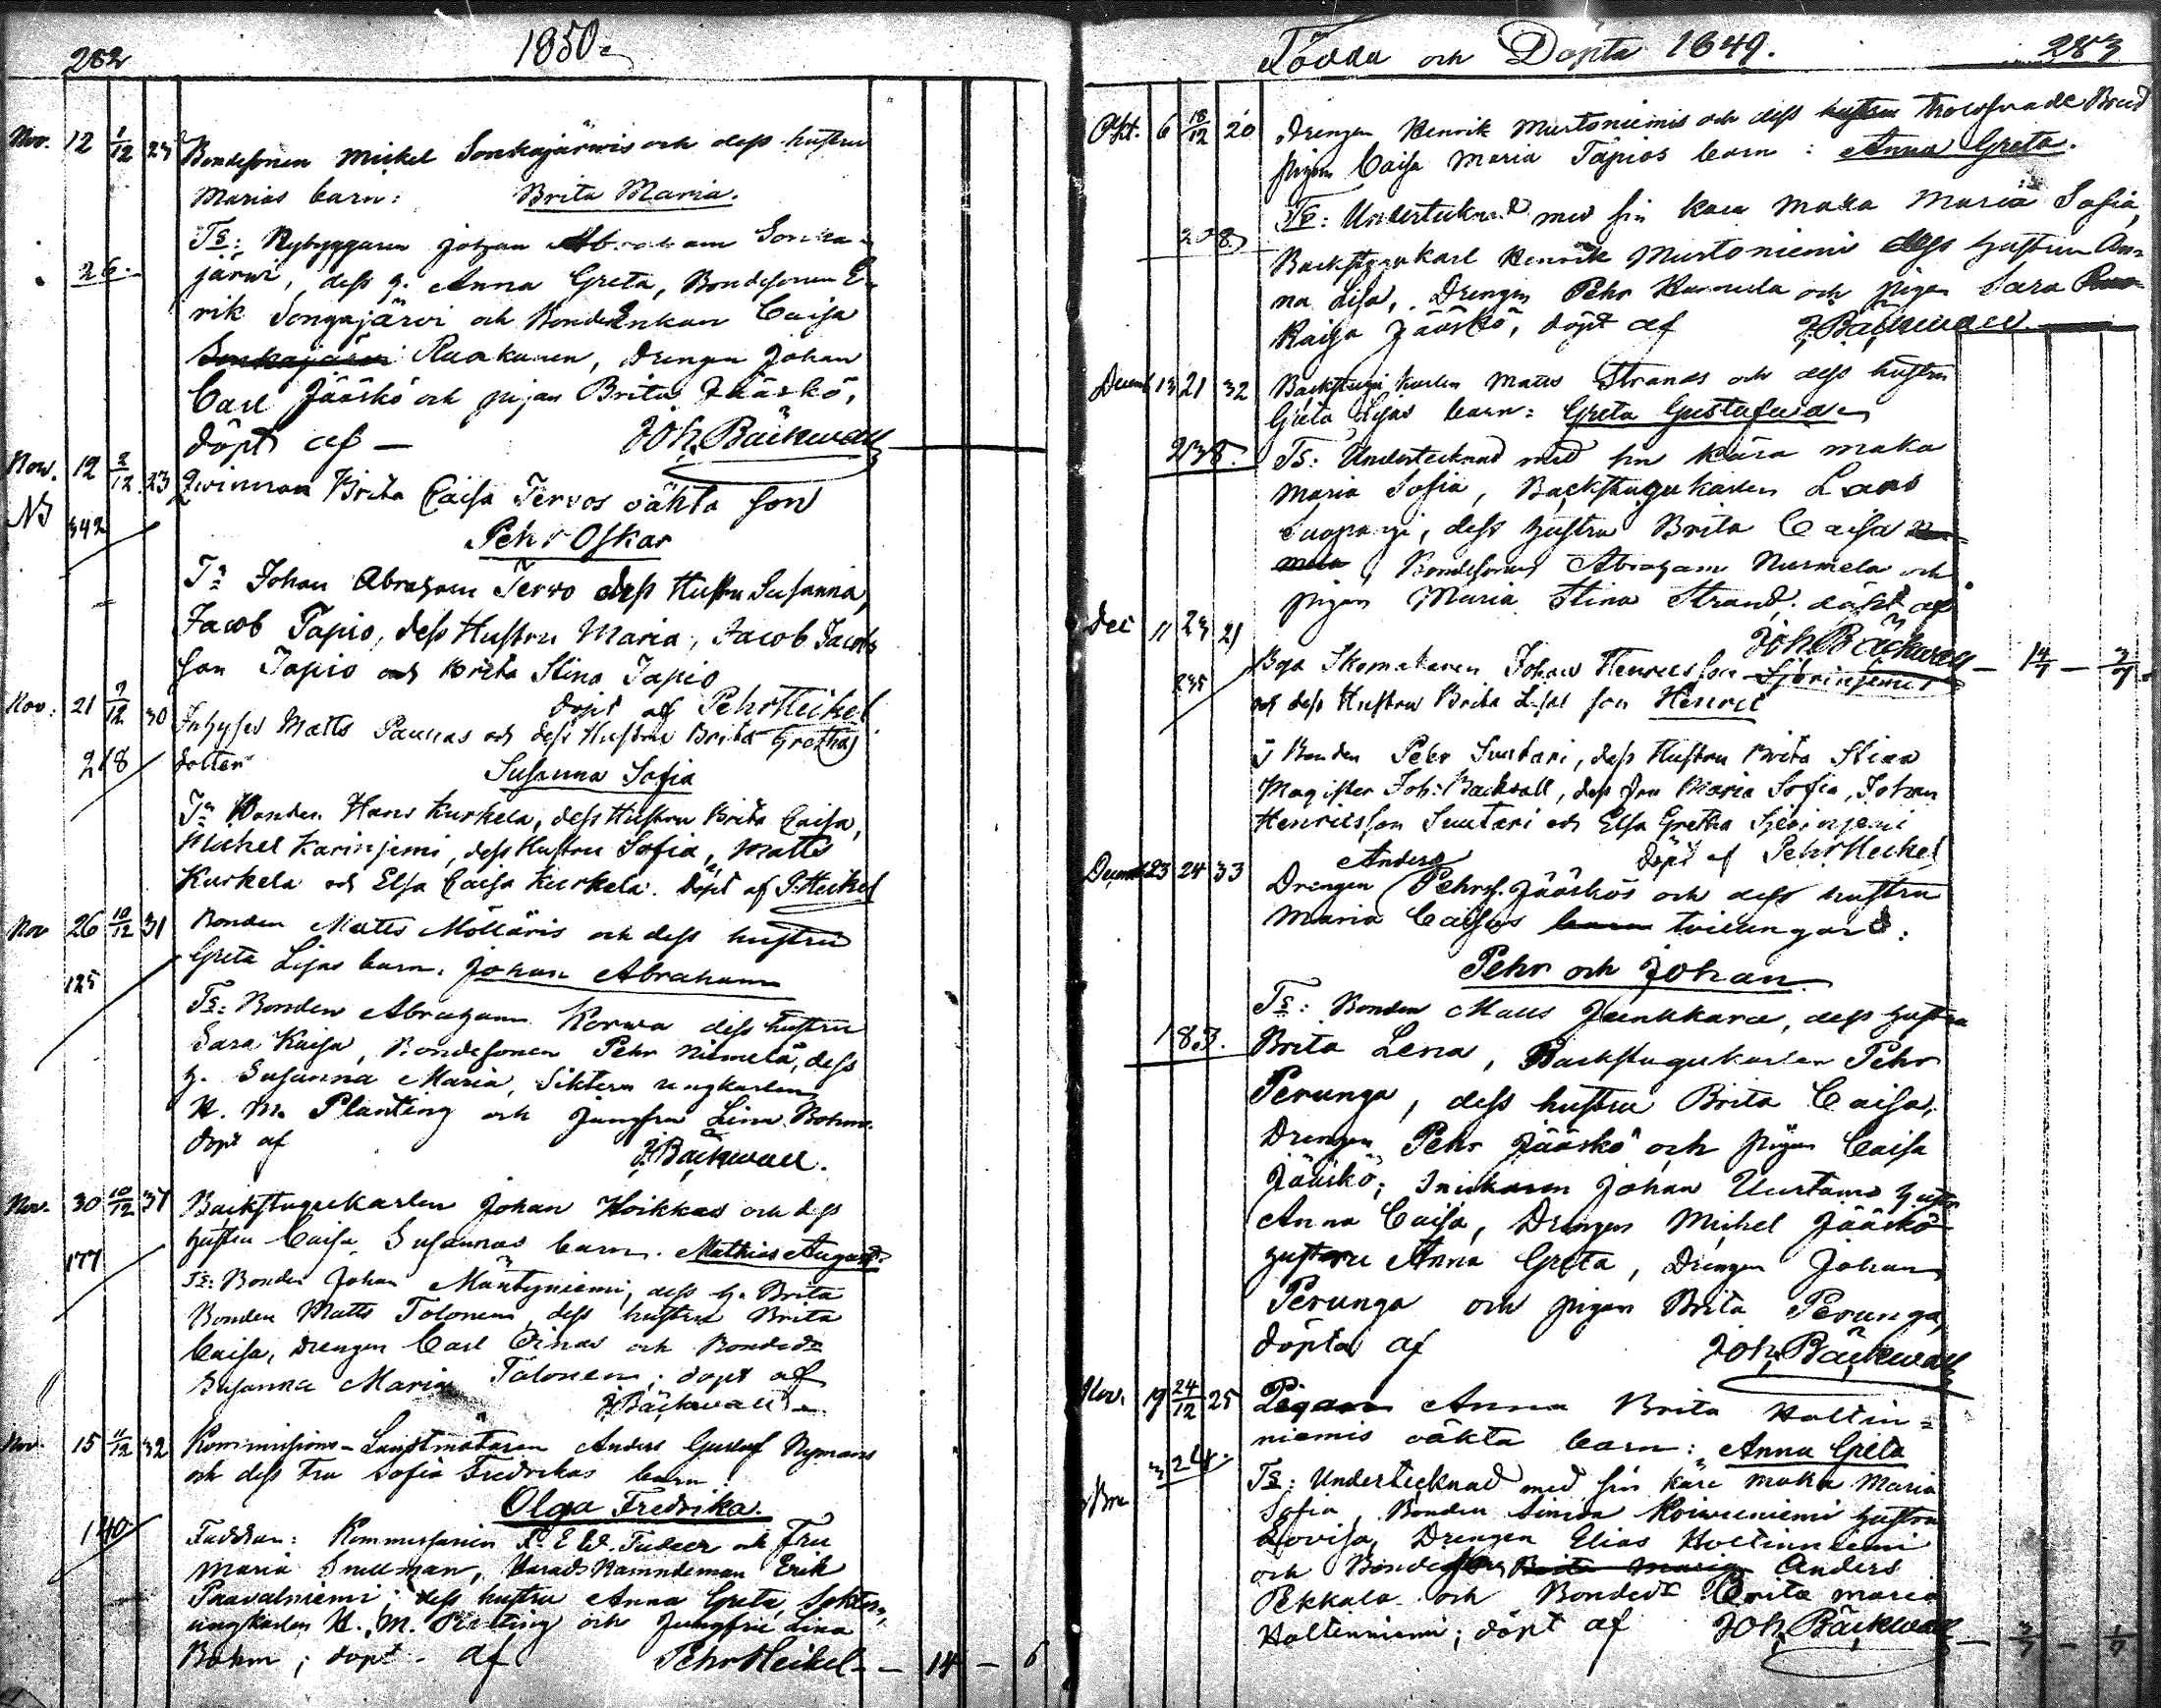 282
1850
Nov. 12 1/12 23 Bondesonen Mickel Sonkajärwis och dess hustru
Marias barn: Brita Maria.
Ts: Nybyggaren Johan Abraham Sonka-
26. järwi, dess h. Anna Greta, Bondesonen E-
rik Songajärvi och BondeEnkan Caisa
Ruokanen, Drengen Johan
Carl Jääskö och pigan Brita Jääskö,
döpt af — Joh. Bäckwall
Nov. 12 2/12 23 Qwinnan Brita Caisa Tervos oäkta son
No 342
Pehr Oskar
Ts Johan Abraham Tervo dess Hustru Susanna,
Jacob Tapio, dess Hustru Maria, Jacob Jacobs
son Tapio och Brita Stina Tapio
döpt af Pehr Heikel
Nov. 21 9/12 30 Inhyses Matts Paunas och dess Hustru Brita Grethas
218 dotter Susanna Sofia
Ts Bonden Hans Kurkela, dess Hustru Brita Caisa,
Michel Karinjemi, dess Hustru Sofia, Matts
Kurkela och Elsa Caisa Kurkela. Döpt af P. Heikel
Nov 26 10/12 31 Bonden Matts Mölläris och dess hustru
Greta Lisas barn. Johan Abraham
125
Ts: Bonden Abraham Korwa dess hustru
Sara Kaisa, Bondesonen Pehr Niemelä, dess
h. Susanna Maria, Sikters ungkarlen
N. M. Planting och Jungfru Lina Bohm.
döpt af J. Bäckwall.
Nov. 30 10/12 37 Backstugukarlen Johan Hoikkas och dess
hustru Caisa Susannas barn. Mathias August.
177
Ts: Bonden Johan Mäntyniemi, dess h. Brita
Bonden Matts Tolonen, dess hustru Brita
Caisa, Drengen Carl Einar och Bondedr
Susanna Maria Tolonen; döpt af
J. Bäckwall.
Nov. 15 11/12 32 Kommissions-Landtmätaren Anders Gustaf Nymans
och dess Fru Sofia Fredrikas barn:
Olga Fredrika.
140 Faddran: Kommissarien K. E. W. Tudeer och Fru
Maria Snellman, Härads Nämndeman Erik
Paavalniemi, dess hustru Anna Greta, Sikters
ungkarlen N. M. Planting och Jungfru Lina
Bohm; döpt af Pehr Heikel — 14 — 6
Födda och Döpta 1849. 283
Okt. 6 18/12 20 Drengen Henrik Murtoniemis och dess hustru trolofwade Brud
pigan Caisa Maria Tapios barn: Anna Greta.
Ts: Undertecknad med sin kära Maka Maria Sofia,
208
Backstugukarl Henrik Murtoniemi dess hustru An-
na Lisa, Drengen Pehr Kurruela och pigan Sara
Kaisa Jääskö, döpt af J. Bäckwall.
Decemb 13 21 32 Backstugukarlen Matts Strands och dess hustru
Greta Lisas barn: Greta Gustafwa
238. Ts: Undertecknad med sin kära maka
Maria Sofia, Backstugukarlen Lars
Suopanji, dess hustru Brita Caisa
Bondesonen Abraham Nurmela och
pigan Maria Stina Strand. döpt af
Joh. Bäckwall
Dec 11 23 21 Bya Skomakaren Johan Henricsson Sjörinjemis — 14/7 — 7/7
235 och dess Hustru Brita Lisas son Henric
T Bonden Pehr Suutari, dess Hustru Brita Stina
Magister Joh: Backwall, dess Fru Maria Sofia, Johan
Henricsson Suutari och Elsa Gretha Sjörinjemi
döpt af Pehr Heikel
Decemb 23 24 33 Drengen Anders Pehrss. Jääskös och dess hustru
Maria Caisas barn tvillingar:
Pehr och Johan
Ts: Bonden Matts Junkkara, dess hustru
183. Brita Lena, Backstugukarlen Pehr
Perunga, dess hustru Brita Caisa,
Drengen Pehr Jääskö och pigan Caisa
Jääskö; Snickaren Johan Uurtamo hustru
Anna Caisa, Drengen Michel Jääskö
hustru Anna Greta, Drengen Johan
Perunga och pigan Brita Perunga,
döpta af Joh. Bäckwall
Nov. 19 24/12 25 Pigan Anna Brita Holtin-
niemis oäkta barn: Anna Greta
324.
Ts: Undertecknad med sin kära maka Maria
Sofia, Bonden Simon Koiwuniemi hustru
Lovisa, Drengen Elias Holtinniemi
och Bondeson Brita Maria Anders
Pekkala och Bondedr Brita Maria
Holtinniemi; döpt af Joh. Bäckwall — 3/7 — 1/7